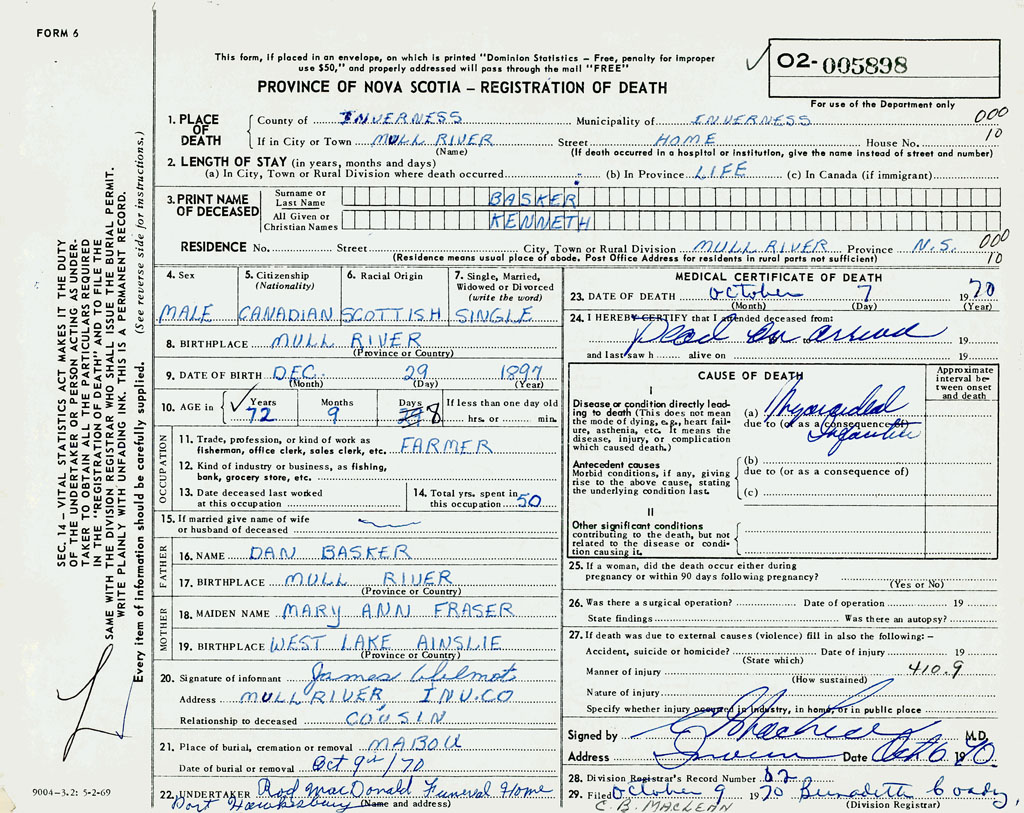 FORM 6
This form, if placed in an envelope, on which is printed "Dominion Statistics – Free, penalty for improper
use $50," and properly addressed will pass through the mail "FREE"
PROVINCE OF NOVA SCOTIA – REGISTRATION OF DEATH
02-005898
For use of the Department only
1. PLACE OF DEATH County of INVERNESS Municipality of INVERNESS 000
If in City or Town MULL RIVER Street HOME House No. 10
(Name) (If death occurred in a hospital or institution, give the name instead of street and number)
2. LENGTH OF STAY (in years, months and days)
(a) In City, Town or Rural Division where death occurred (b) In Province LIFE (c) In Canada (if immigrant)
3. PRINT NAME OF DECEASED
Surname or Last Name BASKER
All Given or Christian Names KENNETH
RESIDENCE No. Street City, Town or Rural Division MULL RIVER Province N.S. 000
(Residence means usual place of abode. Post Office Address for residents in rural parts not sufficient) 10
4. Sex MALE
5. Citizenship (Nationality) CANADIAN
6. Racial Origin SCOTTISH
7. Single, Married, Widowed or Divorced (write the word) SINGLE
8. BIRTHPLACE MULL RIVER
(Province or Country)
9. DATE OF BIRTH DEC. 29 1897
(Month) (Day) (Year)
10. AGE in Years 72 Months 9 Days 8 If less than one day old
hrs. or min.
OCCUPATION
11. Trade, profession, or kind of work as
fisherman, office clerk, sales clerk, etc. FARMER
12. Kind of industry or business, as fishing,
bank, grocery store, etc.
13. Date deceased last worked
at this occupation
14. Total yrs. spent in
this occupation 50
15. If married give name of wife
or husband of deceased
FATHER
16. NAME DAN BASKER
17. BIRTHPLACE MULL RIVER
(Province or Country)
MOTHER
18. MAIDEN NAME MARY ANN FRASER
19. BIRTHPLACE WEST LAKE AINSLIE
(Province or Country)
20. Signature of informant James
Address MULL RIVER INV.CO
Relationship to deceased COUSIN
21. Place of burial, cremation or removal MABOU
Date of burial or removal Oct 9th/70
22. UNDERTAKER Rod MacDonald Funeral Home
Port Hawkesbury (Name and address)
MEDICAL CERTIFICATE OF DEATH
23. DATE OF DEATH October 7 1970
(Month) (Day) (Year)
24. I HEREBY CERTIFY that I attended deceased from:
Dead on arrival 19
and last saw h alive on 19
CAUSE OF DEATH
Approximate interval between onset and death
I
Disease or condition directly leading to death (This does not mean
the mode of dying, e.g., heart failure, asthenia, etc. It means the
disease, injury, or complication which caused death.)
(a) Myocardial
due to (or as a consequence of)
Antecedent causes
Morbid conditions, if any, giving rise to the above cause, stating the underlying condition last.
(b)
due to (or as a consequence of)
(c)
II
Other significant conditions
contributing to the death, but not related to the disease or condition causing it.
25. If a woman, did the death occur either during
pregnancy or within 90 days following pregnancy?
(Yes or No)
26. Was there a surgical operation? Date of operation 19
State findings Was there an autopsy?
27. If death was due to external causes (violence) fill in also the following: –
Accident, suicide or homicide? Date of injury 19
(State which)
Manner of injury 410.9
(How sustained)
Nature of injury
Specify whether injury occurred in industry, in home, or in public place
Signed by M.D.
Address Date Oct 6 1970
28. Division Registrar's Record Number 62
29. Filed October 9 1970 Bernadette Coady
C. B. MACLEAN (Division Registrar)
SEC. 14 – VITAL STATISTICS ACT MAKES IT THE DUTY
OF THE UNDERTAKER OR PERSON ACTING AS UNDER-
TAKER TO OBTAIN ALL THE PARTICULARS REQUIRED
IN THE "REGISTRATION OF DEATH" AND TO FILE THE
SAME WITH THE DIVISION REGISTRAR WHO SHALL ISSUE THE BURIAL PERMIT.
WRITE PLAINLY WITH UNFADING INK. THIS IS A PERMANENT RECORD.
Every item of information should be carefully supplied. (See reverse side for instructions.)
9004-3.2: 5-2-69